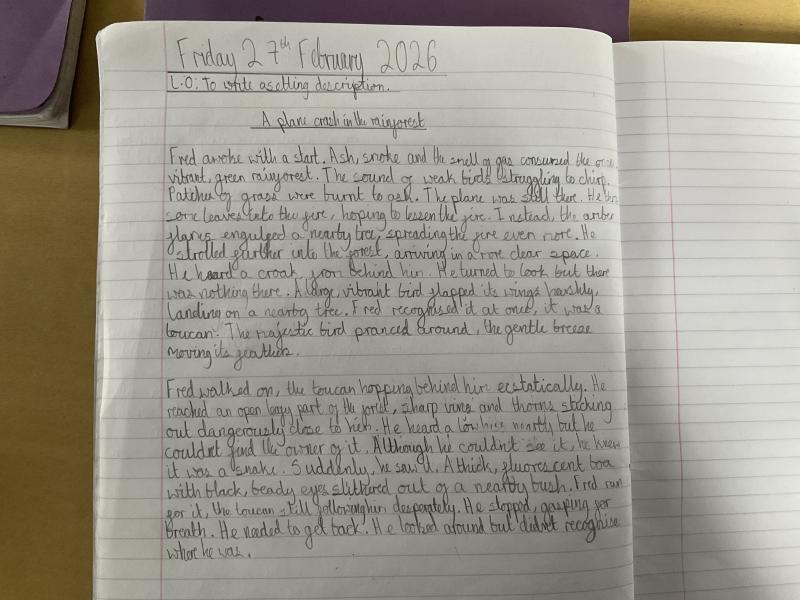 Friday 27th February 2026
L.O: To write a setting description.
A plane crash in the rainforest
Fred awoke with a start. Ash, smoke and the smell of gas consumed the once
vibrant, green rainforest. The sound of weak birds struggling to chirp.
Patches of grass were burnt to ash. The plane was still there. He threw
some leaves into the fire, hoping to lessen the fire. Instead, the amber
flames engulfed a nearby tree, spreading the fire even more. He
strolled further into the forest, arriving in a more clear space.
He heard a croak from behind him. He turned to look but there
was nothing there. A large, vibrant bird flapped its wings harshly,
landing on a nearby tree. Fred recognised it at once, it was a
toucan. The majestic bird pranced around, the gentle breeze
moving its feathers.
Fred walked on, the toucan hopping behind him ecstatically. He
reached an open leafy part of the forest, sharp vines and thorns sticking
out dangerously close to him. He heard a low hiss nearby but he
couldn't find the owner of it. Although he couldn't see it, he knew
it was a snake. Suddenly, he saw it. A thick, fluorescent boa
with black, beady eyes slithered out of a nearby bush. Fred ran
for it, the toucan still following him desperately. He stopped, gasping for
breath. He needed to get back. He looked around but didn't recognise
where he was.